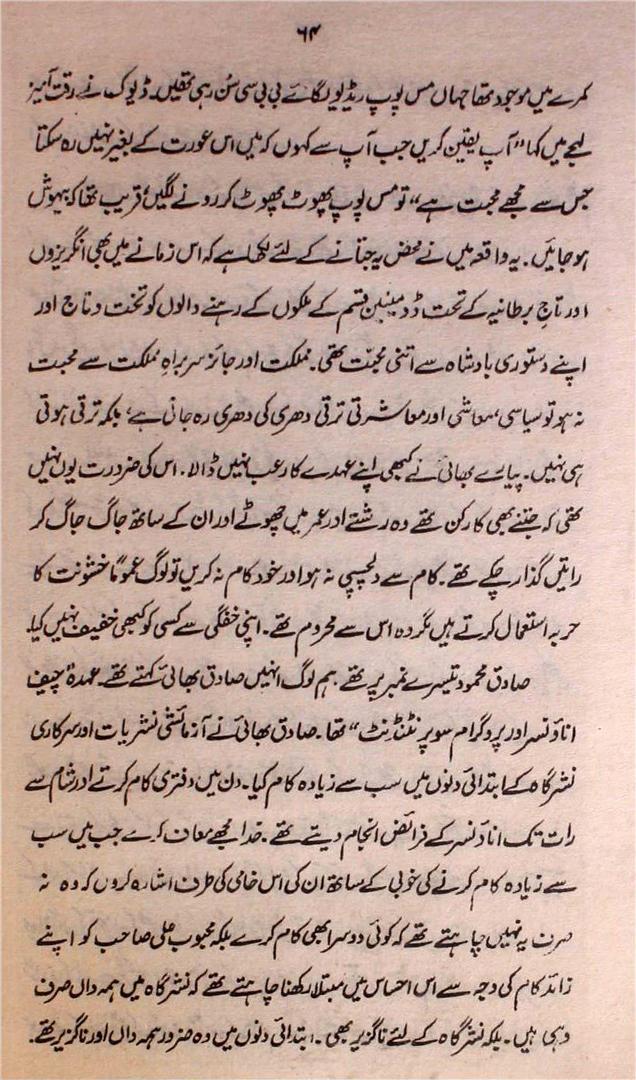 ۶۴
کمرے میں موجود تھا جہاں مس پوپ ریڈیو لگائے بی بی سی سُن رہی تھیں۔ ڈیوک نے رقت آمیز
لہجے میں کہا "آپ یقین کریں جب آپ سے کہوں کہ میں اس عورت کے بغیر نہیں رہ سکتا
جس سے مجھے محبت ہے" تو مس پوپ پھوٹ پھوٹ کر رونے لگیں، قریب تھا کہ بیہوش
ہو جائیں۔ یہ واقعہ میں نے محض یہ جتانے کے لئے لکھا ہے کہ اس زمانے میں بھی انگریزوں
اور تاجِ برطانیہ کے تحت ڈومینین قسم کے ملکوں کے رہنے والوں کو تخت و تاج اور
اپنے دستوری بادشاہ سے اتنی محبّت تھی۔ مملکت اور جائز سربراہِ مملکت سے محبت
نہ ہو تو سیاسی، معاشی اور معاشرتی ترقی دھری کی دھری رہ جاتی ہے، بلکہ ترقی ہوتی
ہی نہیں۔ پیارے بھائی نے کبھی اپنے عہدے کا رعب نہیں ڈالا۔ اس کی ضرورت یوں نہیں
تھی کہ جتنے بھی کارکن تھے وہ رشتے اور عمر میں چھوٹے اور ان کے ساتھ جاگ جاگ کر
راتیں گذار چکے تھے۔ کام سے دلچسپی نہ ہو اور خود کام نہ کریں تو لوگ عموماً خشونت کا
حربہ استعمال کرتے ہیں مگر وہ اس سے محروم تھے۔ اپنی خفگی سے کسی کو کبھی خفیف نہیں کیا۔
صادق محمود تیسرے نمبر پر تھے۔ ہم لوگ انہیں صادق بھائی کہتے تھے۔ عہدہ "چیف
اناؤنسر اور پروگرام سوپرنٹنڈنٹ" تھا۔ صادق بھائی نے آزمائشی نشریات اور سرکاری
نشرگاہ کے ابتدائی دنوں میں سب سے زیادہ کام کیا۔ دن میں دفتری کام کرتے اور شام سے
رات تک اناؤنسر کے فرائض انجام دیتے تھے۔ خدا مجھے معاف کرے جب میں سب
سے زیادہ کام کرنے کی خوبی کے ساتھ ان کی اس خامی کی طرف اشارہ کروں کہ وہ نہ
صرف یہ نہیں چاہتے تھے کہ کوئی دوسرا بھی کام کرے بلکہ محبوب علی صاحب کو اپنے
زائد کام کی وجہ سے اس احساس میں مبتلا رکھنا چاہتے تھے کہ نشرگاہ میں ہمہ داں صرف
وہی ہیں۔ بلکہ نشرگاہ کے لئے ناگزیر بھی۔ ابتدائی دنوں میں وہ ضرور ہمہ داں اور ناگزیر تھے۔